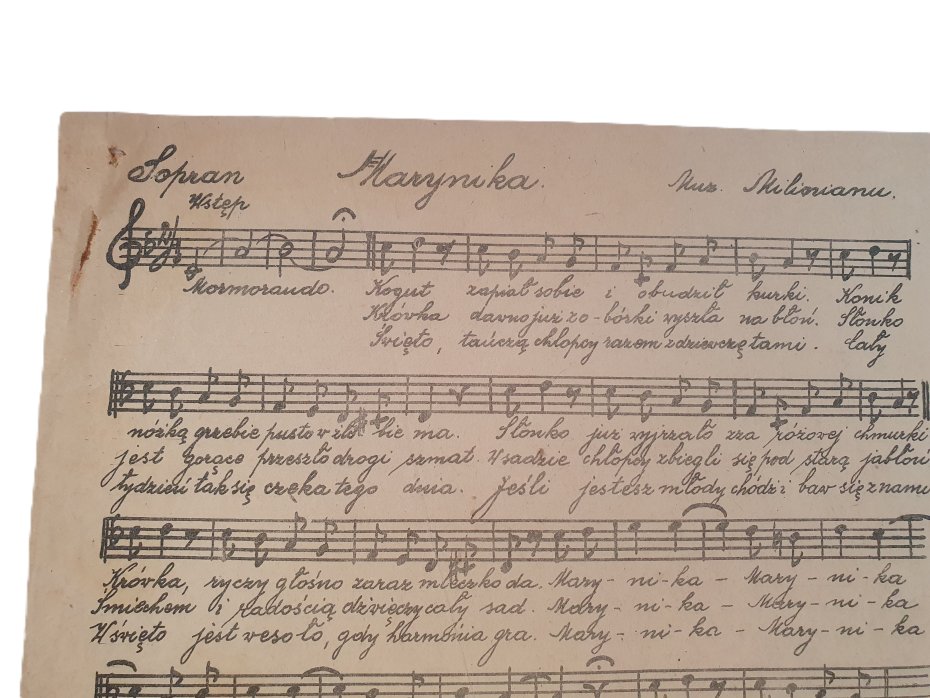 Sopran Marynika. Muz. Milizianu.
Wstęp
Mormorando. Kogut zapiał sobie i obudził kurki. Konik
Krówka dawno już zo-bórki wyszła na błoń. Słonko
Święto, tańczą chłopcy razem z dziewczętami. Cały
nóżką grzebie pusto w żłobie ma. Słonko już wyjrzało zza różowej chmurki
jest gorące przeszło drogi szmat. W sadzie chłopcy zbiegli się pod starą jabłoń
tydzień tak się czeka tego dnia. Jeśli jesteś młody chódź i baw się z nami
Krówka, ryczy głośno zaraz mleczko da. Mary- ni-ka - Mary- ni- ka
Śmiechem i radością dźwięczy cały sad. Mary- ni- ka - Mary- ni- ka
W święto jest wesoło, gdy harmonia gra. Mary- ni- ka - Mary- ni- ka